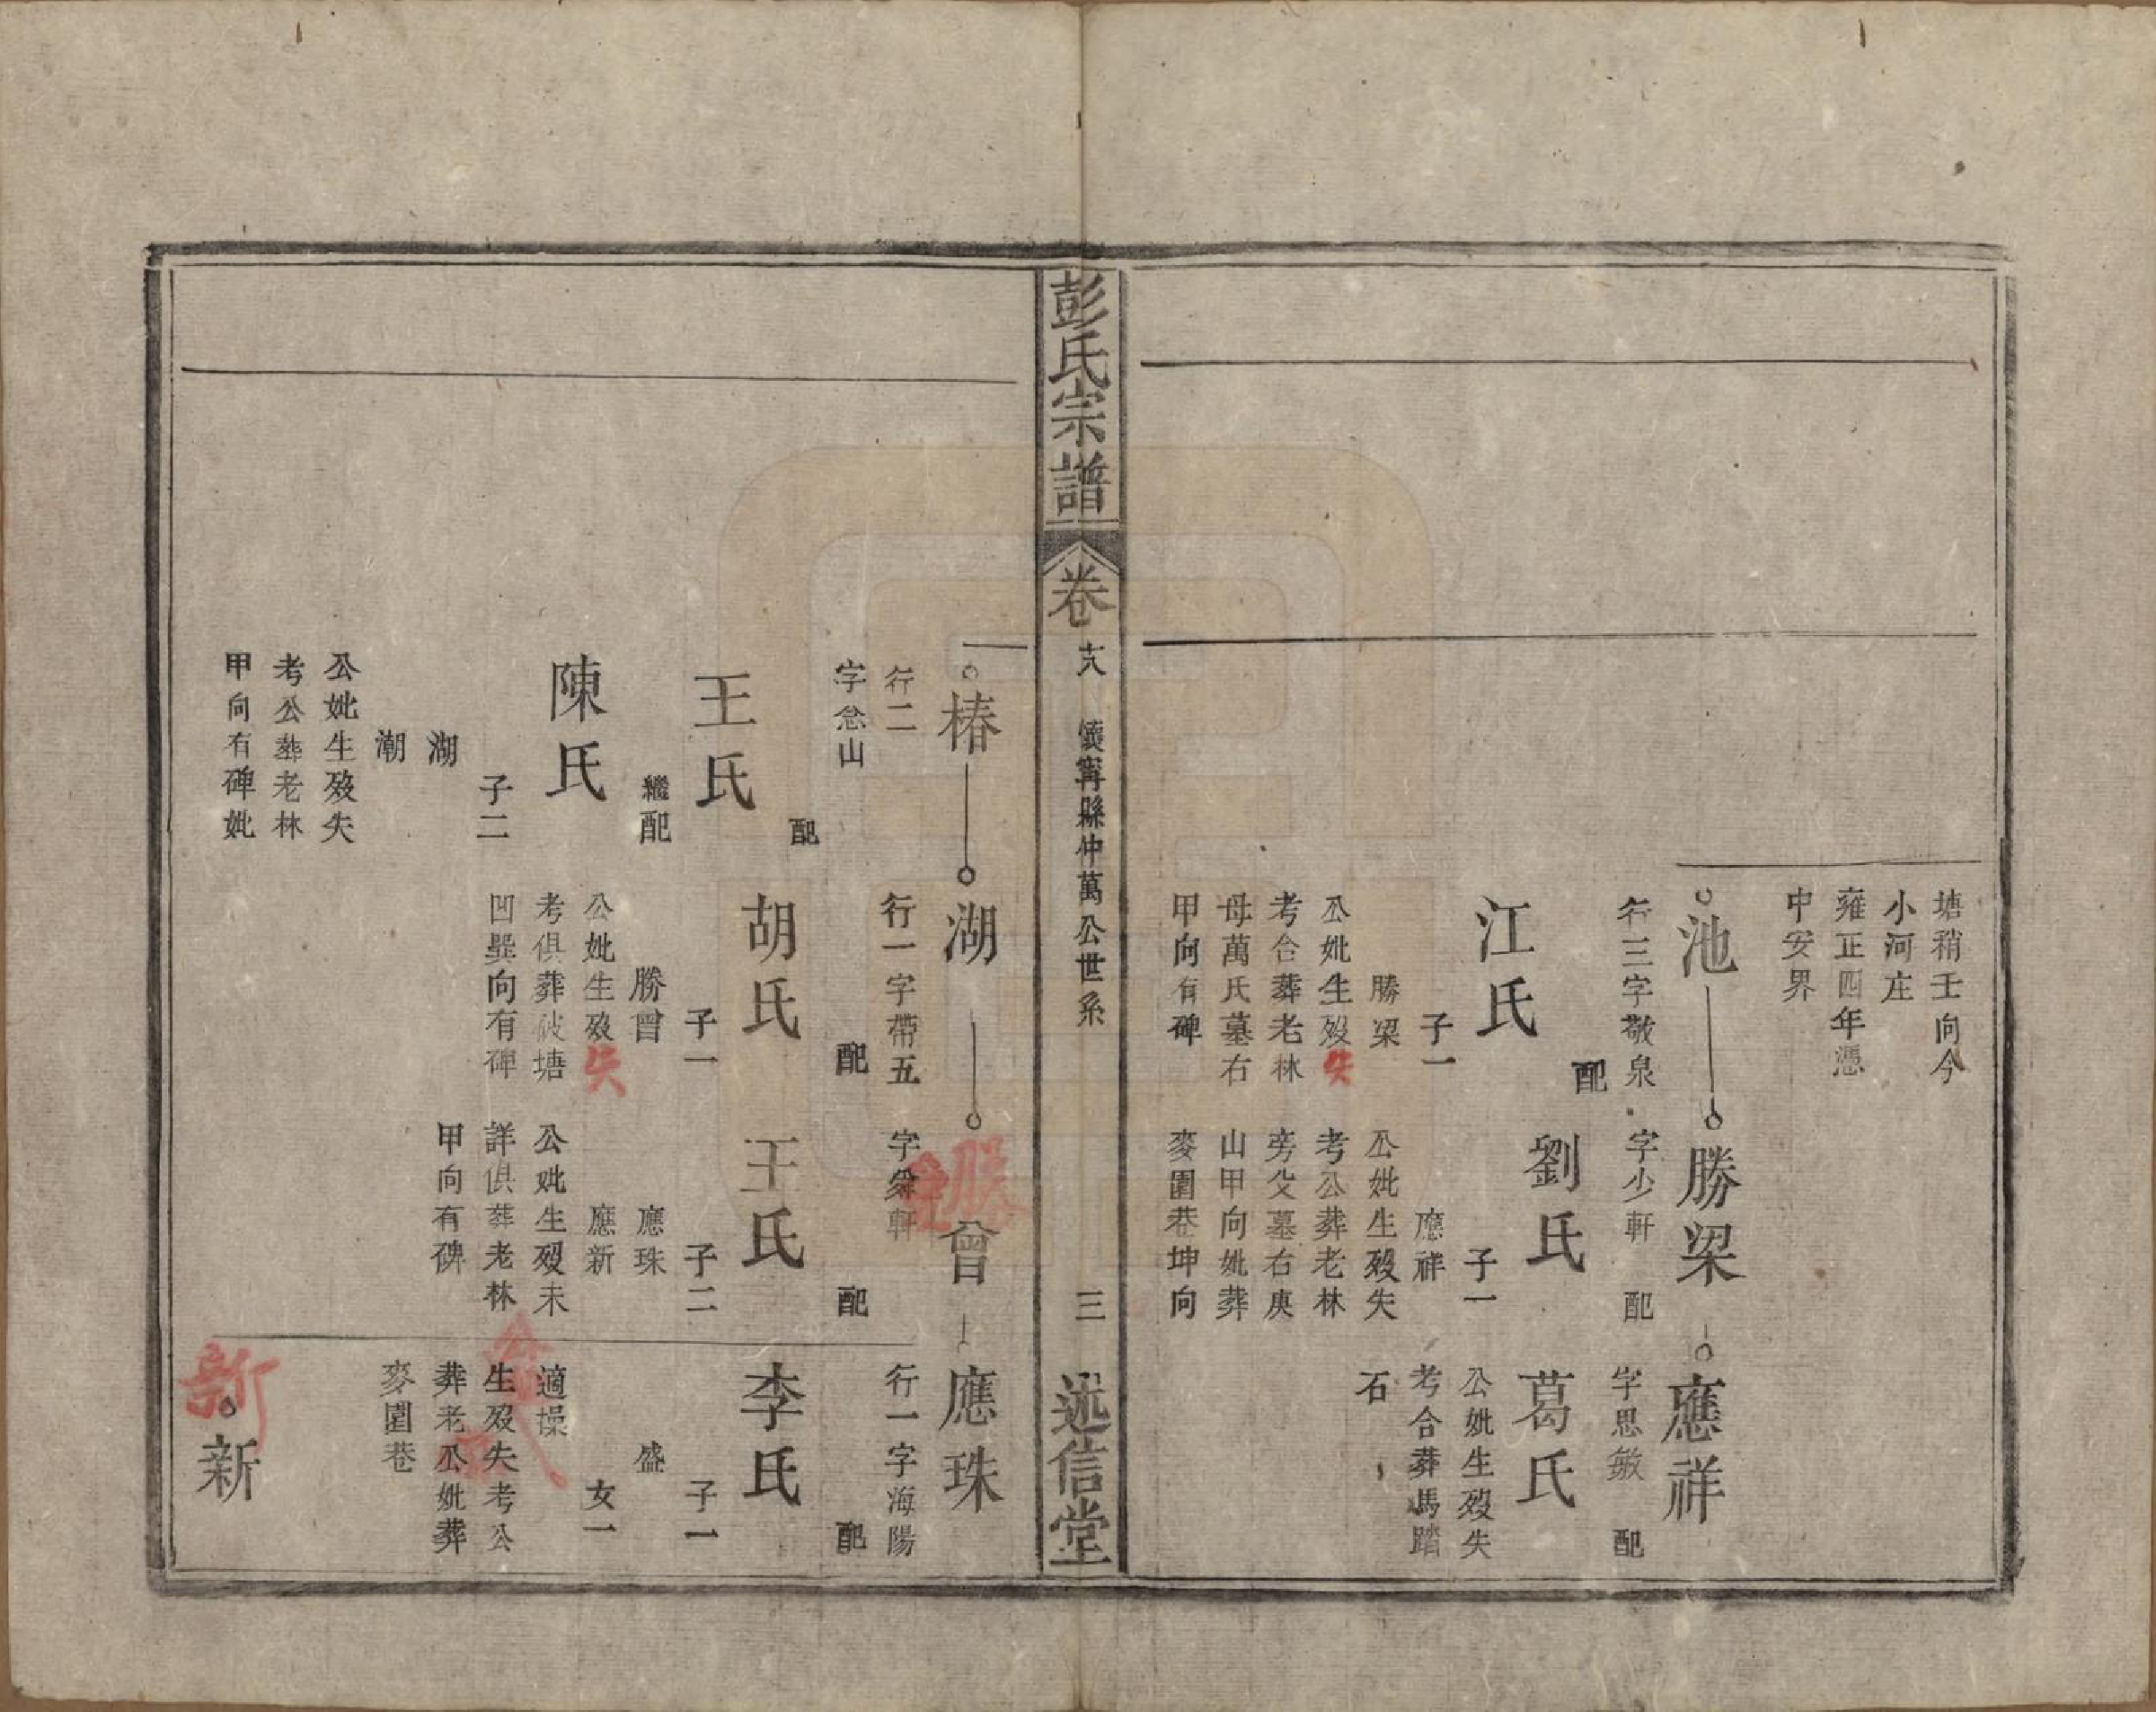 塘稍壬向今
小河庄
雍正四年憑
中安界
池
行三字敬泉
配
江氏
子一
勝梁
公妣生歿失
考合葬老林
母萬氏墓右
甲向有碑
勝梁
字少軒
配
劉氏
子一
應祥
公妣生歿失
考公葬老林
旁父墓右庚
山甲向妣葬
麥園巷坤向
應祥
字思敏
配
葛氏
公妣生歿失
考合葬馬踏
石
彭氏宗譜
卷
十八
懷寧縣仲萬公世系
三
述信堂
椿
行二
字忿山
配
王氏
繼配
陳氏
子二
湖
潮
公妣生歿失
考公葬老林
甲向有碑妣
湖
行一字帶五
配
胡氏
子一
勝曾
公妣生歿失
考俱葬破塘
凹巽向有碑
勝曾
字弅軒
配
王氏
子二
應珠
應新
公妣生歿未
詳俱葬老林
甲向有碑
應珠
行一字海陽
配
李氏
子一
盛
女一
適操
生歿失考公
葬老公妣葬
麥園巷
新
新